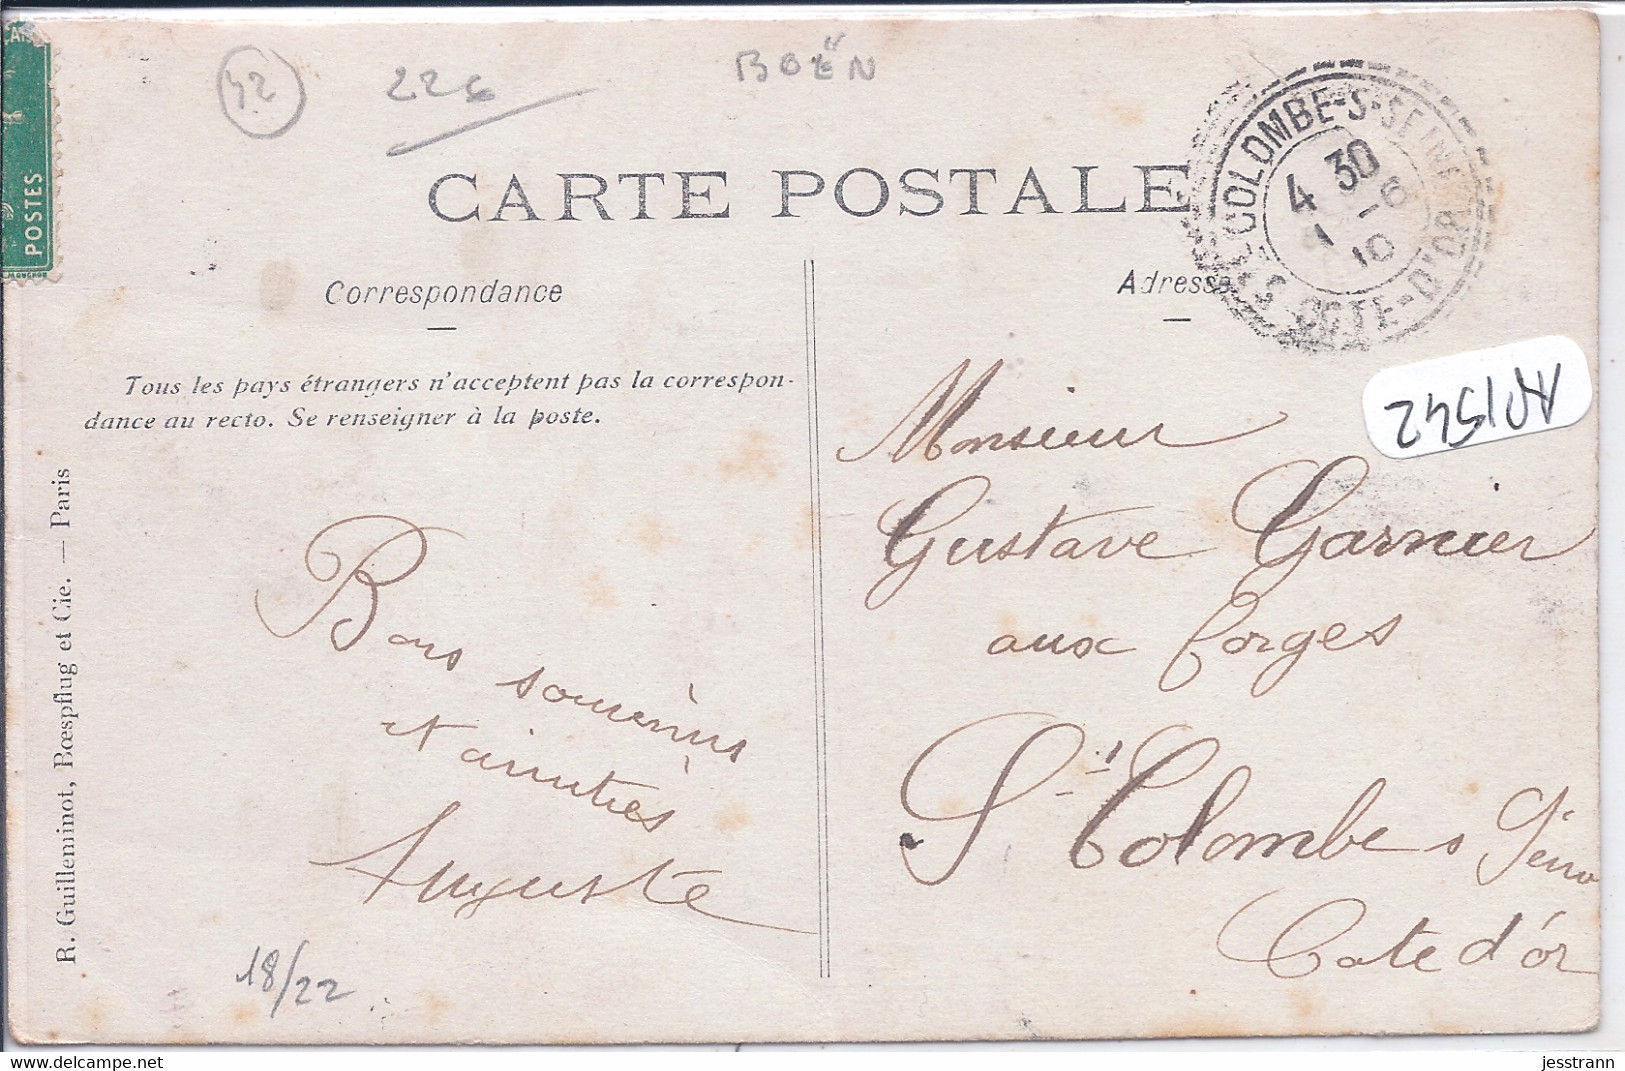 POSTES
42
226
BOËN
CARTE POSTALE
STE-COLOMBE-S-SEINE
4 30
1-6
10
COTE-D'OR
Correspondance
Adresse
Tous les pays étrangers n'acceptent pas la correspon-
dance au recto. Se renseigner à la poste.
A01542
R. Guilleminot, Bœspflug et Cie. — Paris
Monsieur
Gustave Garnier
aux forges
Ste Colombe s Seine
Cote d'or
Bons souvenirs
et amitiés
Auguste
18/22
jesstrann